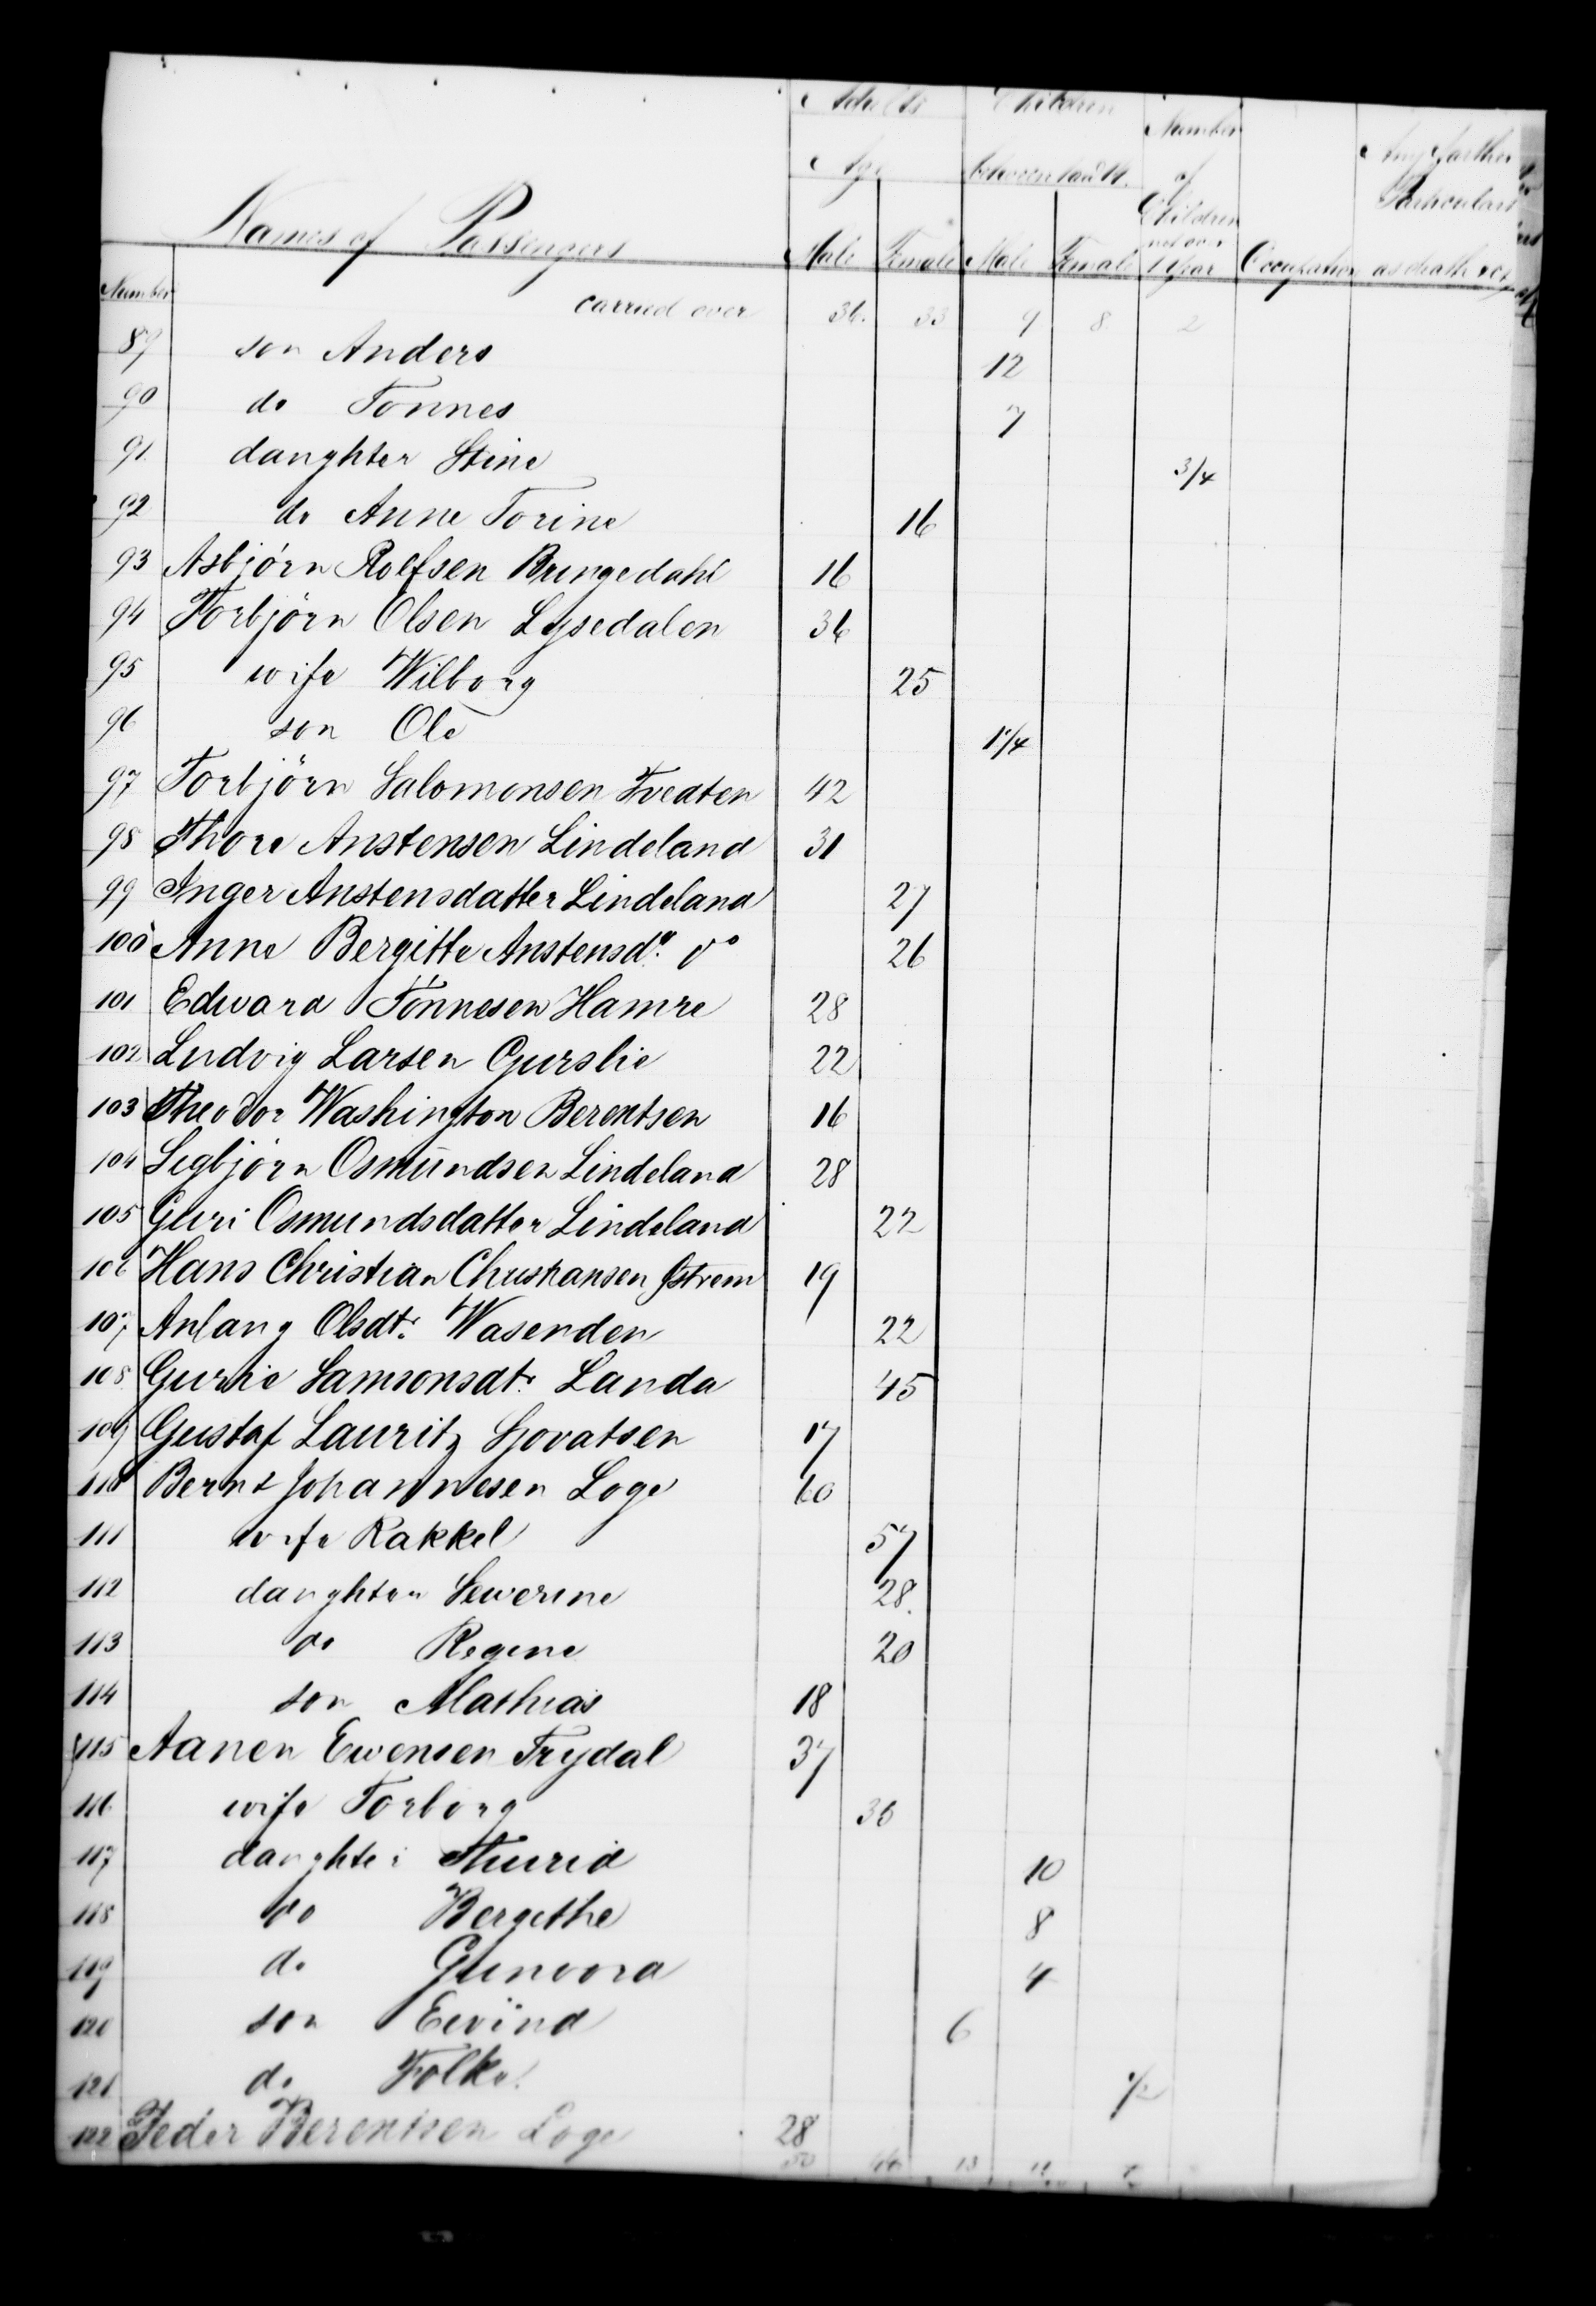 Adults Children Number
Age between 1 and 14. of Any farther
Names of Passengers Children Particulars
not over
Number Male Female Male Female 1 Year Occupation as death &c
carried over 36. 33 9 8 2
89 son Anders 12
90 do Tönnes 7
91. daughter Stine 3/4
92 do Anne Torine 16
93 Asbjörn Rolfsen Rungedahl 16
94 Torbjörn Olsen Lysedalen 36
95 wife Wilborg 25
96 son Ole 1 1/4
97 Torbjörn Salomonsen Tvedten 42
98 Thore Anstensen Lindeland 31
99 Inger Anstensdatter Lindeland 27
100 Anne Bergitte Anstensdr. do 26
101 Edward Tönnesen Hamre 28
102 Ludvig Larsen Gurslie 22
103 Theodor Washington Berentsen 16
104 Segbjörn Osmundsen Lindeland 28
105 Guri Osmundsdatter Lindeland 22
106 Hans Christian Christiansen Östrem 19
107 Anlaug Olsdtr. Wasenden 22
108 Gurie Samsonsdtr. Landa 45
109 Gustaf Lauritz Govatsen 17
110 Bernt Johannesen Loge 60
111 wife Rakkel 57
112 daughter Sewerine 28.
113 do Regine 20
114 son Mathias 18
115 Aanen Ewensen Frydal 37
116 wife Torborg 36
117 daughter Thurid 10
118 do Bergethe 8
119 do Gunvora 4
120 son Eevind 6
121 do Folke 1/2
122 Peder Berentsen Loge 28
50 44 13 11